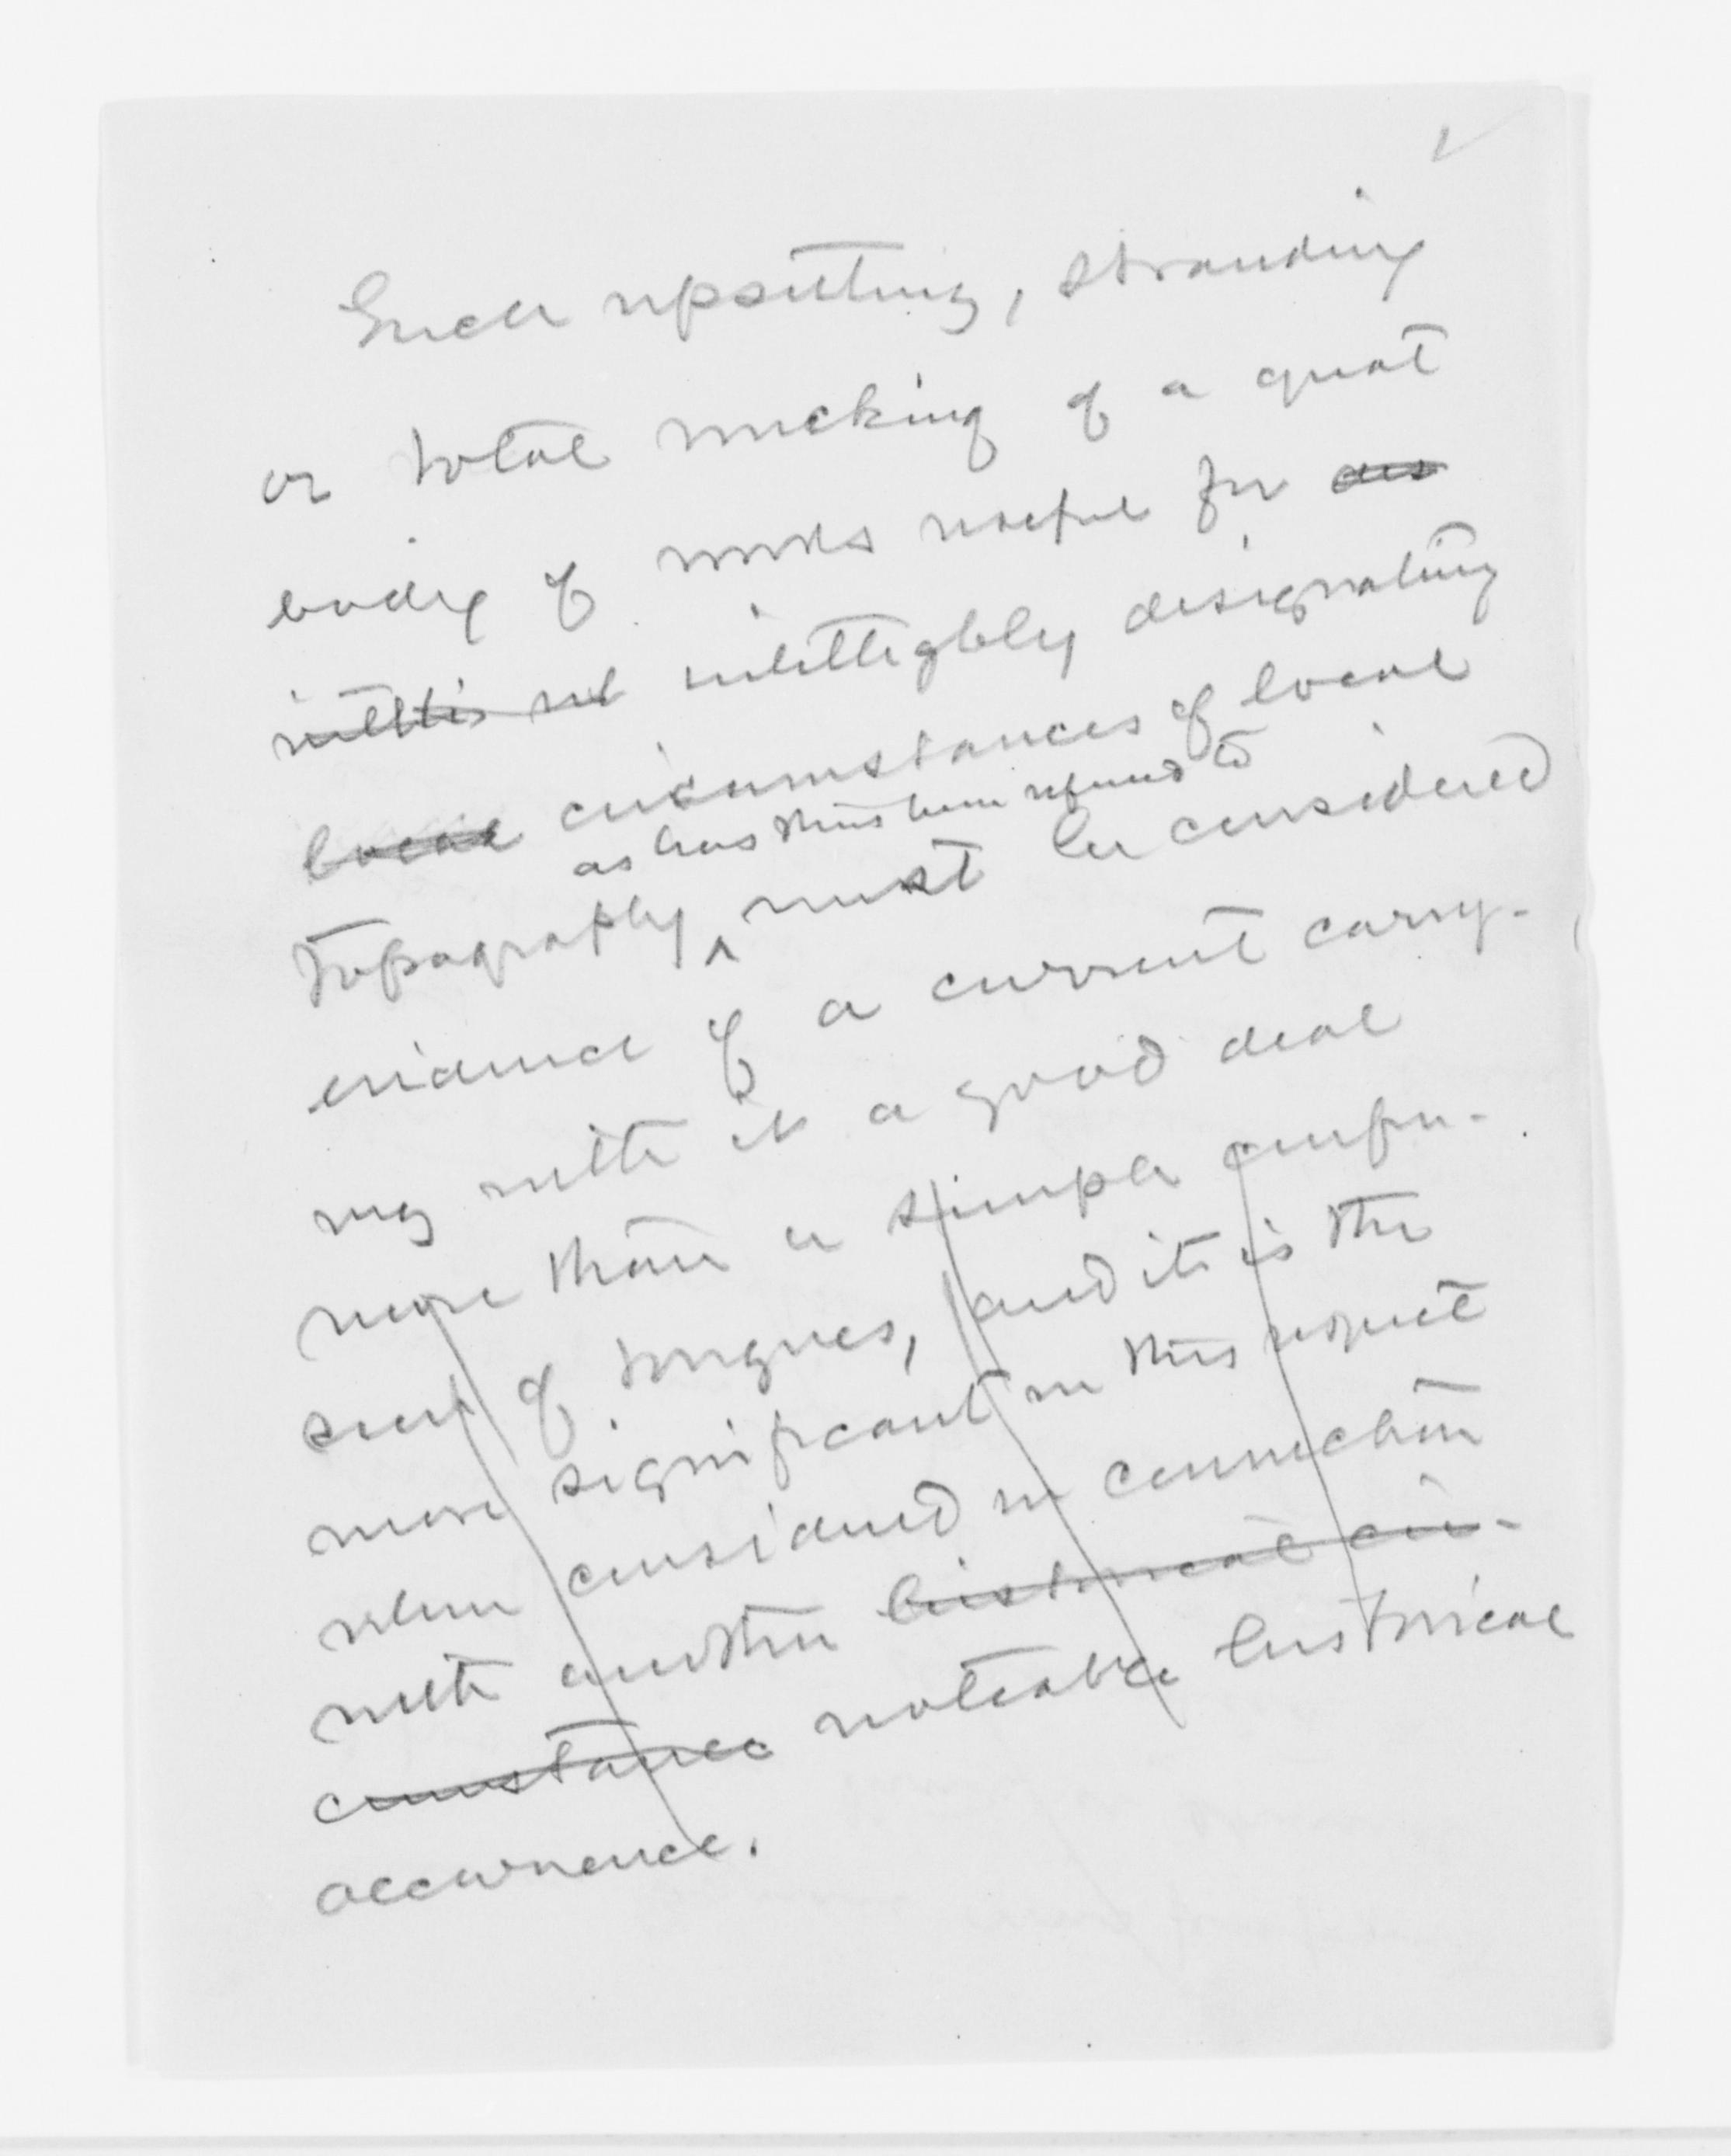 Such upsetting, stranding
or total wrecking of a great
body of words useful for des
intelligbly designating
local circumstances of local
as has thus been referred to
topography ^ must be considered
evidence of a current carry-
ing with it a good deal
more than a simple confu-
sion of tongues, and it is the
more significant in this respect
when considered in connection
with another historical cir-
cumstance noteable historical
occurrence.